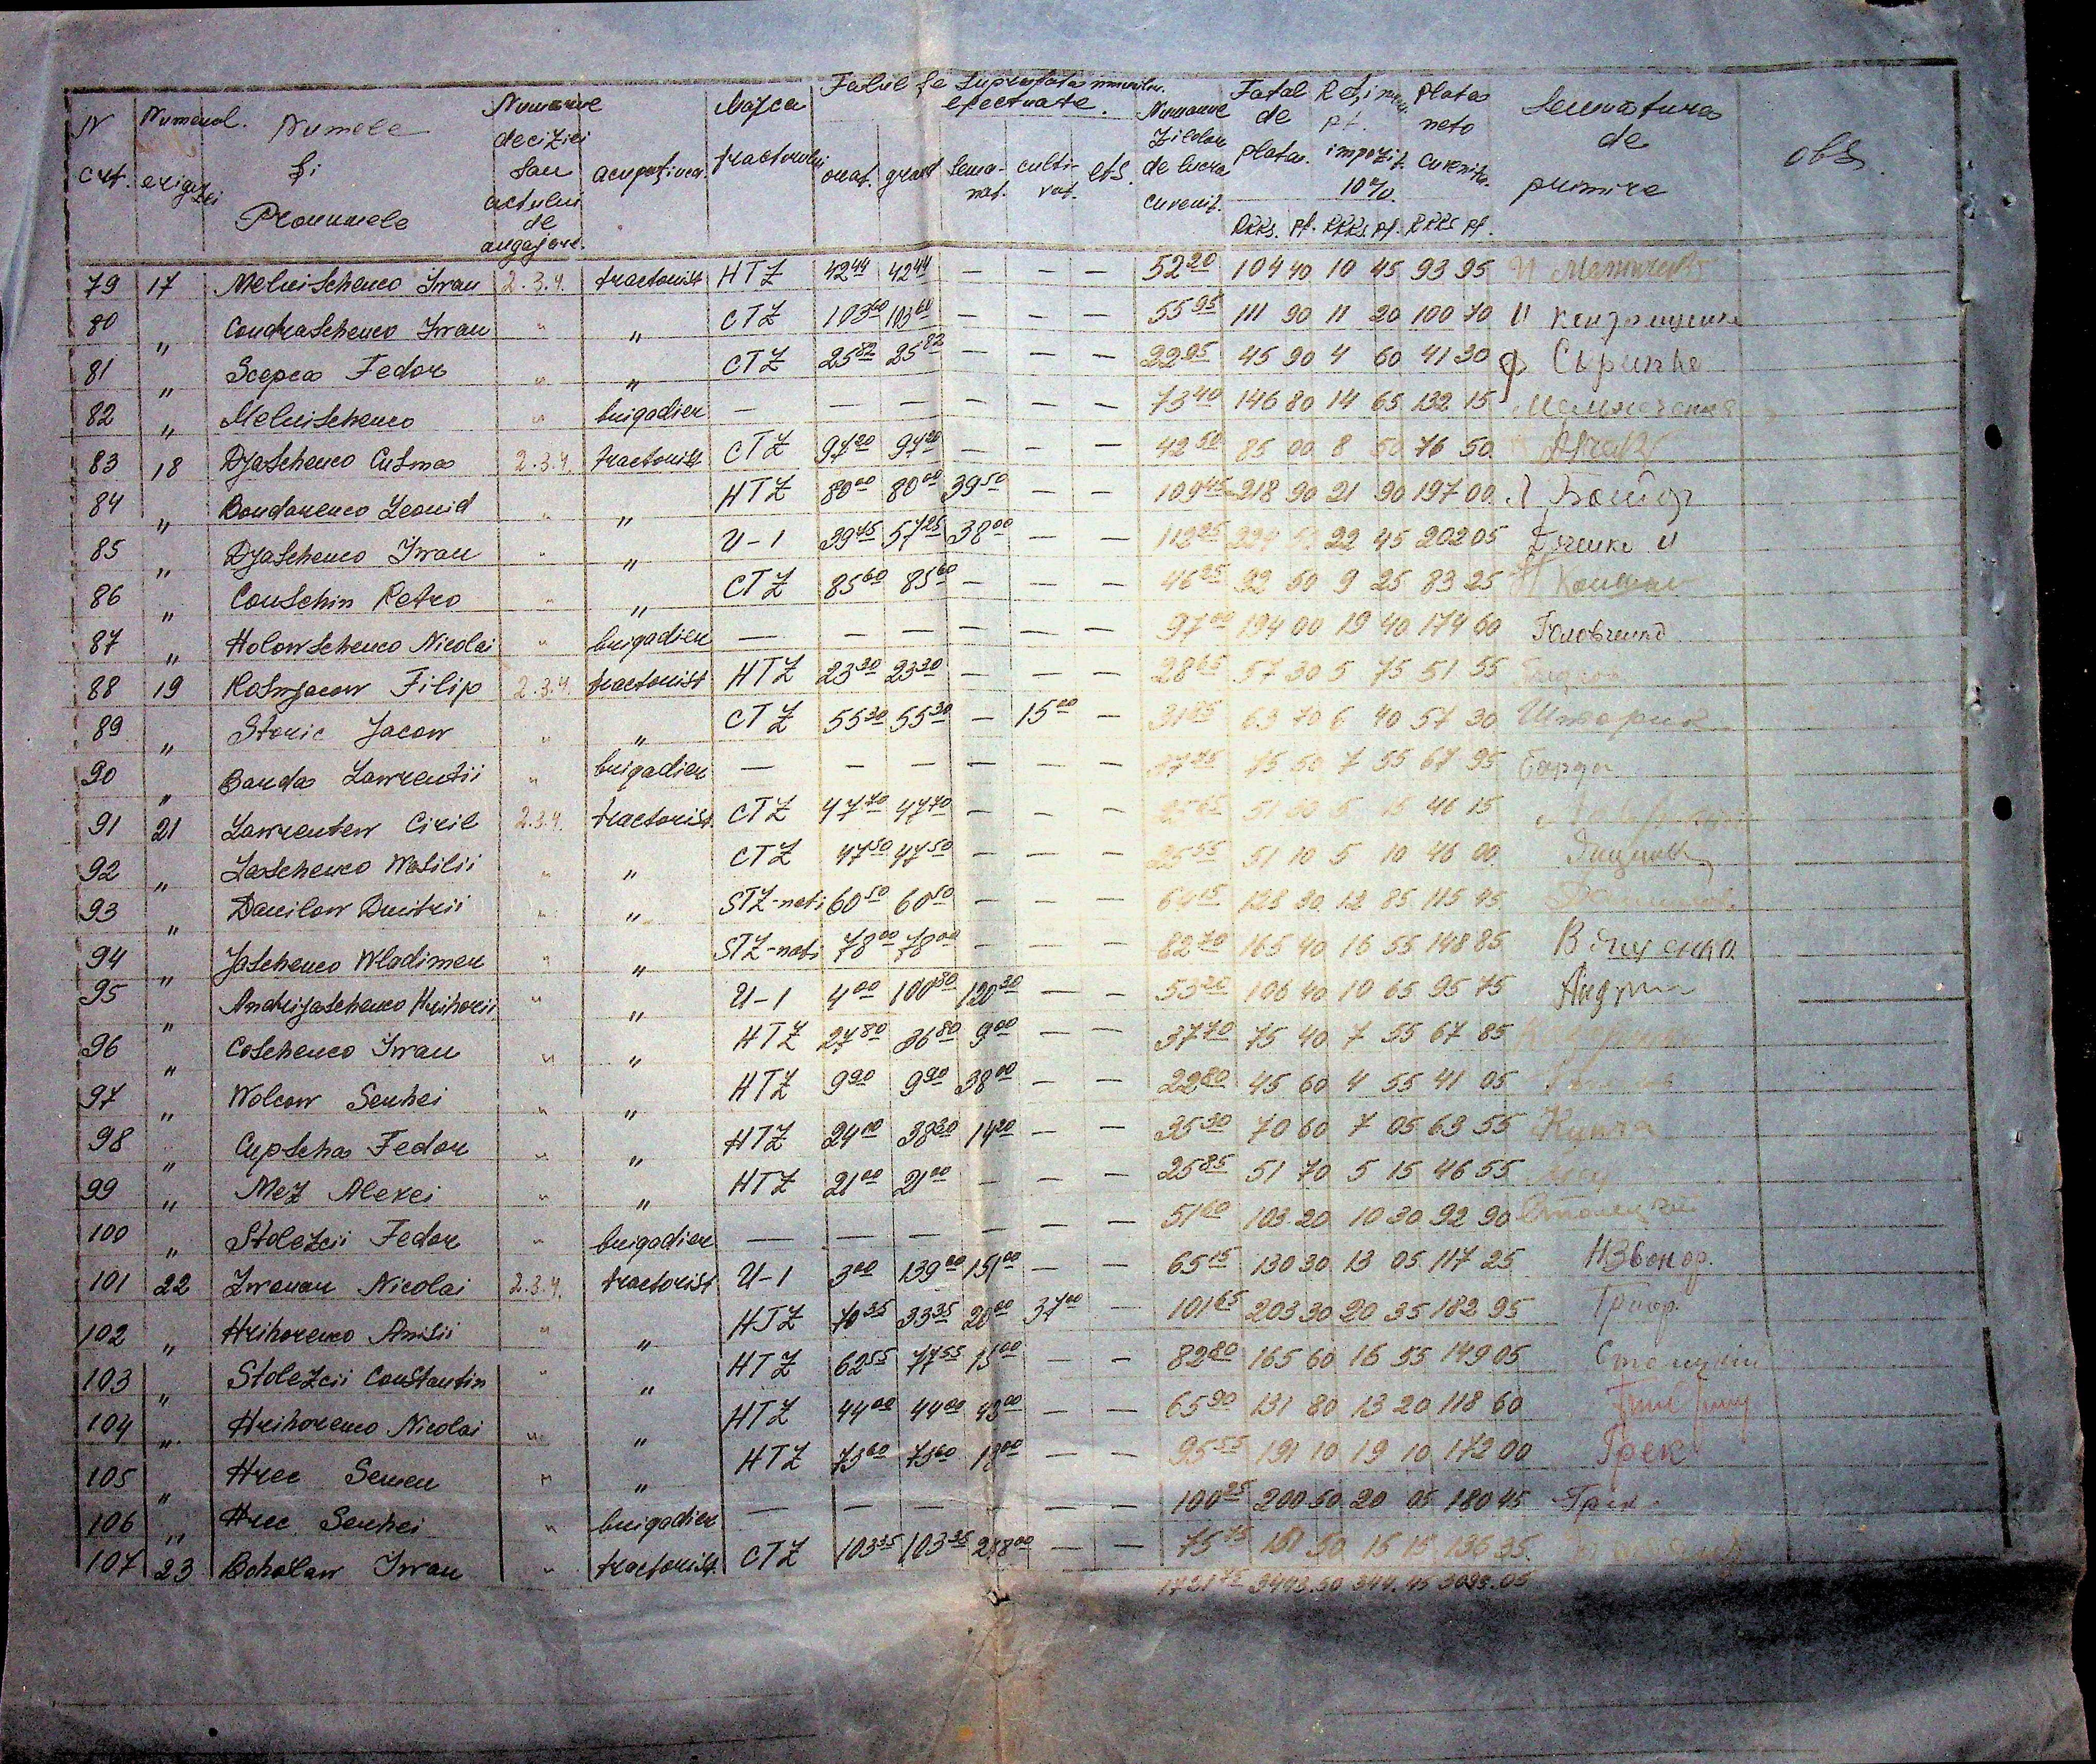 N crt. Numerol. erigezei Numele și Pronumele Numarul deciziei sau actului de angajare. acupațiuea. Marca tractorului Felul și Suprafata muncilor efectuate. arat. grapat Semanat. cultivat. etc. Numarul zilelor de lucru cuvenit. Total de plata. Rețineri pt. impozit. 10%. plata neto cuvenita. Semnatura de primire obs.
RKKS. pf. RKKS. pf. RKKS pf.
79 17 Melnischenco Iwan 2.3.4. tractorist HTZ 42 44 42 44 — — — 52 20 104 40 10 45 93 95
80 " Condraschenco Iwan " " CTZ 103 60 103 60 — — — 55 95 111 90 11 20 100 70
81 " Scepca Fedor " " CTZ 25 82 25 82 — — — 22 95 45 90 4 60 41 30
82 " Melnischenco " brigadier — — — — — — 73 40 146 80 14 65 132 15
83 18 Djaschenco Cusma 2.3.4. tractorist CTZ 97 20 97 20 — — — 42 50 85 00 8 50 76 50
84 " Bondarenco Leonid " " HTZ 80 00 80 00 39 50 — — 109 45 218 90 21 90 197 00
85 " Djaschenco Iwan " " U-1 39 75 57 25 38 00 — — 112 25 224 50 22 45 202 05
86 " Conschin Petro " " CTZ 85 60 85 60 — — — 46 25 92 50 9 25 83 25
87 " Holowschenco Nicolai " brigadier — — — — — — 97 00 194 00 19 40 174 60 Головченко
88 19 Kosmjacow Filip 2.3.4. tractorist HTZ 23 30 23 30 — — — 28 65 57 30 5 75 51 55
89 " Storic Jacow " " CTZ 55 30 55 30 — 15 00 — 31 85 63 70 6 40 57 30
90 " Banda Lawrentii " brigadier — — — — — — 37 75 75 50 7 55 67 95
91 21 Lawrentew Ciril 2.3.4. tractorist CTZ 47 70 47 70 — — — 25 65 51 30 5 15 46 15
92 " Laschenco Wasilii " " CTZ 47 50 47 50 — — — 25 55 51 10 5 10 46 00
93 " Danilow Dmitrii " " STZ-nati 60 50 60 50 — — — 64 15 128 30 12 85 115 45
94 " Jaschenco Wladimer " " STZ-nati 78 00 78 00 — — — 82 70 165 40 16 55 148 85
95 " Andrijaschenco Hrihorii " " U-1 4 00 100 80 120 30 — — 53 20 106 40 10 65 95 75
96 " Coschenco Iwan " " HTZ 27 80 36 80 9 00 — — 37 70 75 40 7 55 67 85
97 " Wolcow Serhei " " HTZ 9 90 9 90 38 00 — — 22 80 45 60 4 55 41 05
98 " Cupscha Fedor " " HTZ 24 10 38 30 14 20 — — 35 30 70 60 7 05 63 55
99 " Mez Alexei " " HTZ 21 00 21 00 — — — 25 85 51 70 5 15 46 55
100 " Stolezcii Fedor " brigadier — — — — — — 51 60 103 20 10 30 92 90
101 22 Zwonar Nicolai 2.3.4. tractorist U-1 3 00 139 00 151 00 — — 65 15 130 30 13 05 117 25 Н Звонор.
102 " Hrihorenco Anisii " " HTZ 70 35 33 35 20 00 37 00 — 101 65 203 30 20 35 182 95
103 " Stolezcii Constantin " " HTZ 62 55 77 55 15 00 — — 82 80 165 60 16 55 149 05
104 " Hrihorenco Nicolai " " HTZ 44 00 44 00 43 00 — — 65 90 131 80 13 20 118 60
105 " Hrec Semen " " HTZ 73 60 73 60 18 00 — — 95 55 191 10 19 10 172 00 Грек
106 " Hrec Serhei " brigadier — — — — — — 100 25 200 50 20 05 180 45
107 23 Boholaw Iwan " tractorist. CTZ 103 35 103 35 218 00 — — 75 75 151 50 15 15 136 35
1721 75 3443.50 344.45 3099.05